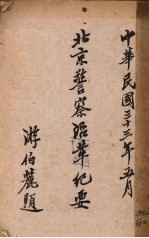 中華民國二十三年五月
北京警察沿革紀要
游伯麓題